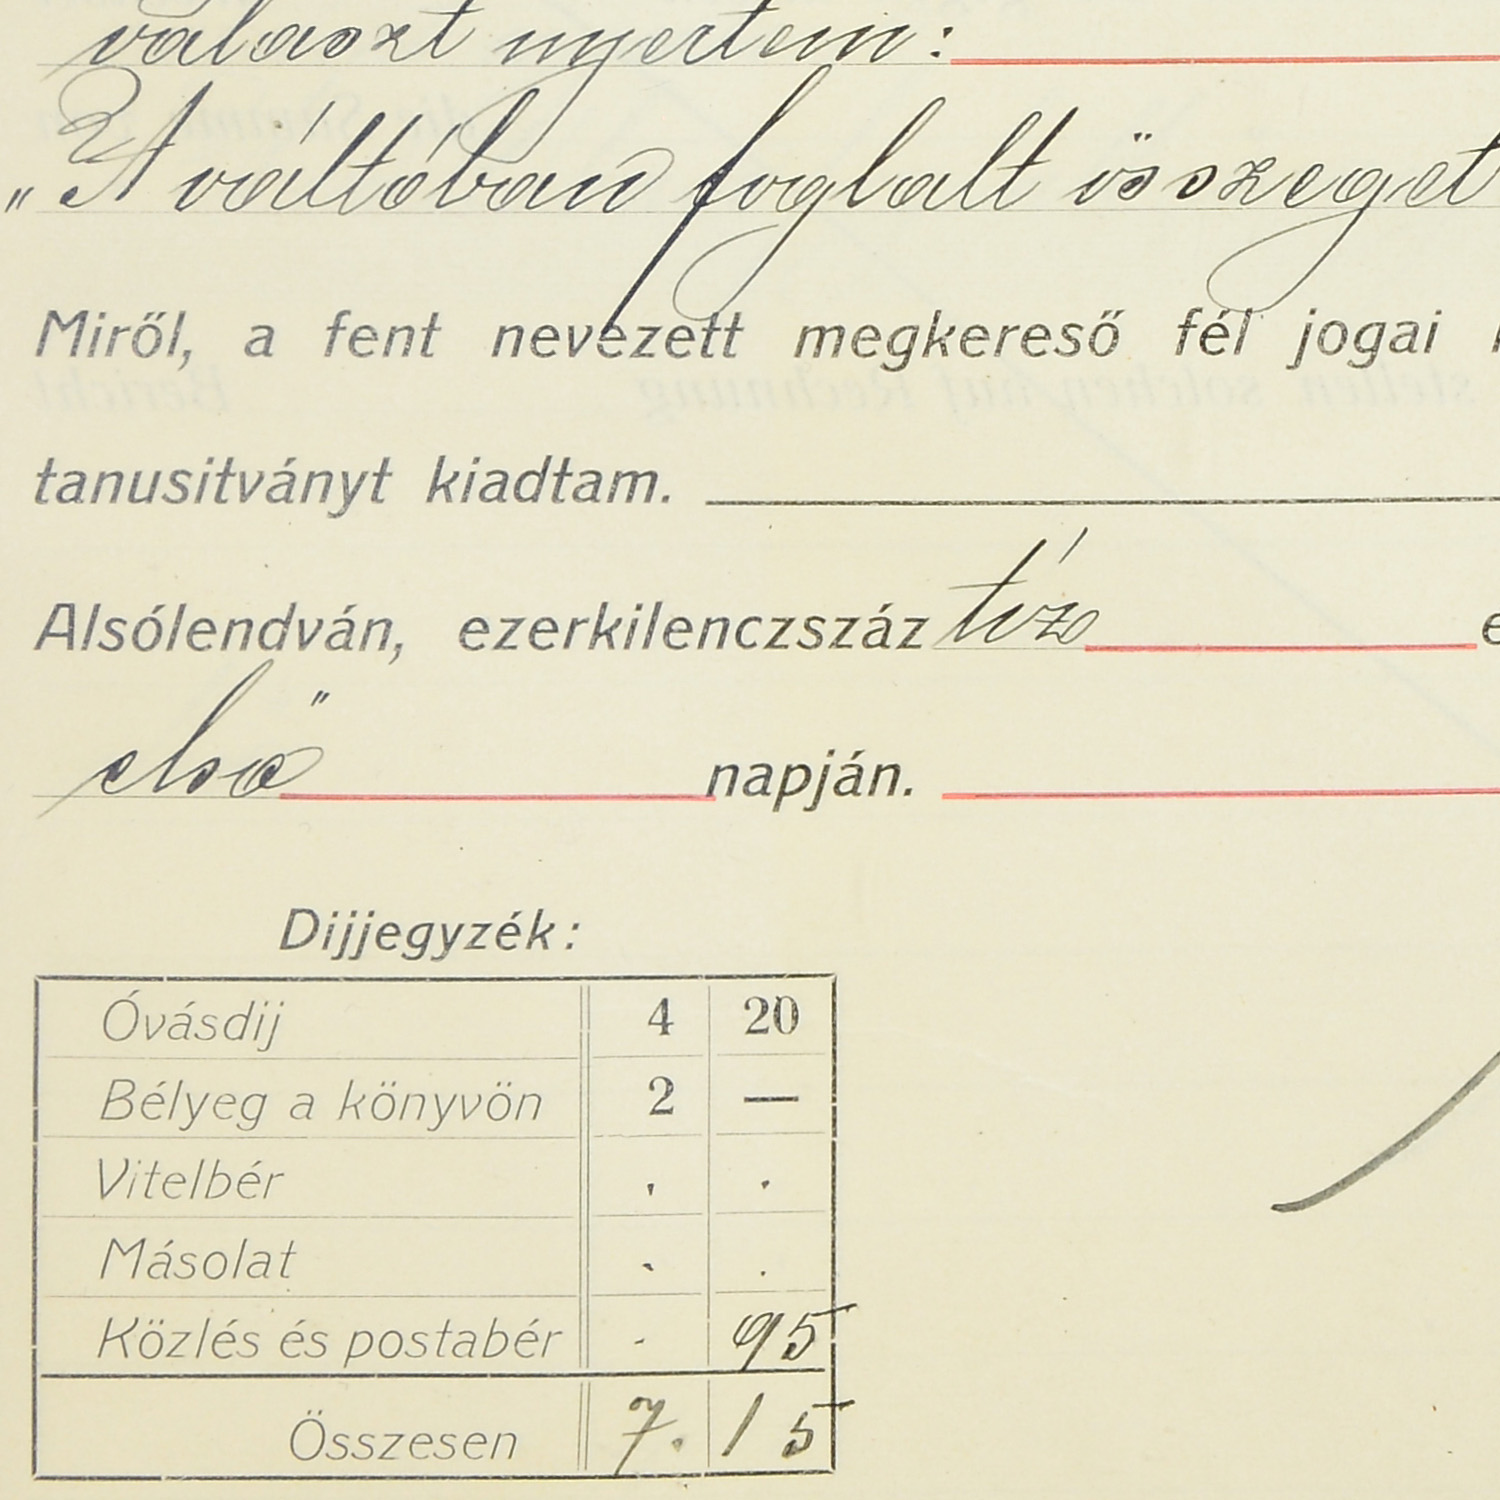 választ nyertem:
„A váltóban foglalt összeget
Miről, a fent nevezett megkereső fél jogai
tanusitványt kiadtam.
Alsólendván, ezerkilenczszáz tíz
első napján.
Dijjegyzék:
Óvásdij 4 20
Bélyeg a könyvön 2 —
Vitelbér . .
Másolat . .
Közlés és postabér - 95
Összesen 7. 15